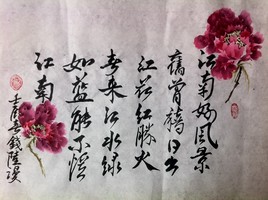 江南好風景
舊曾諳日出
江花紅勝火
春来江水緑
如藍能不憶
江南